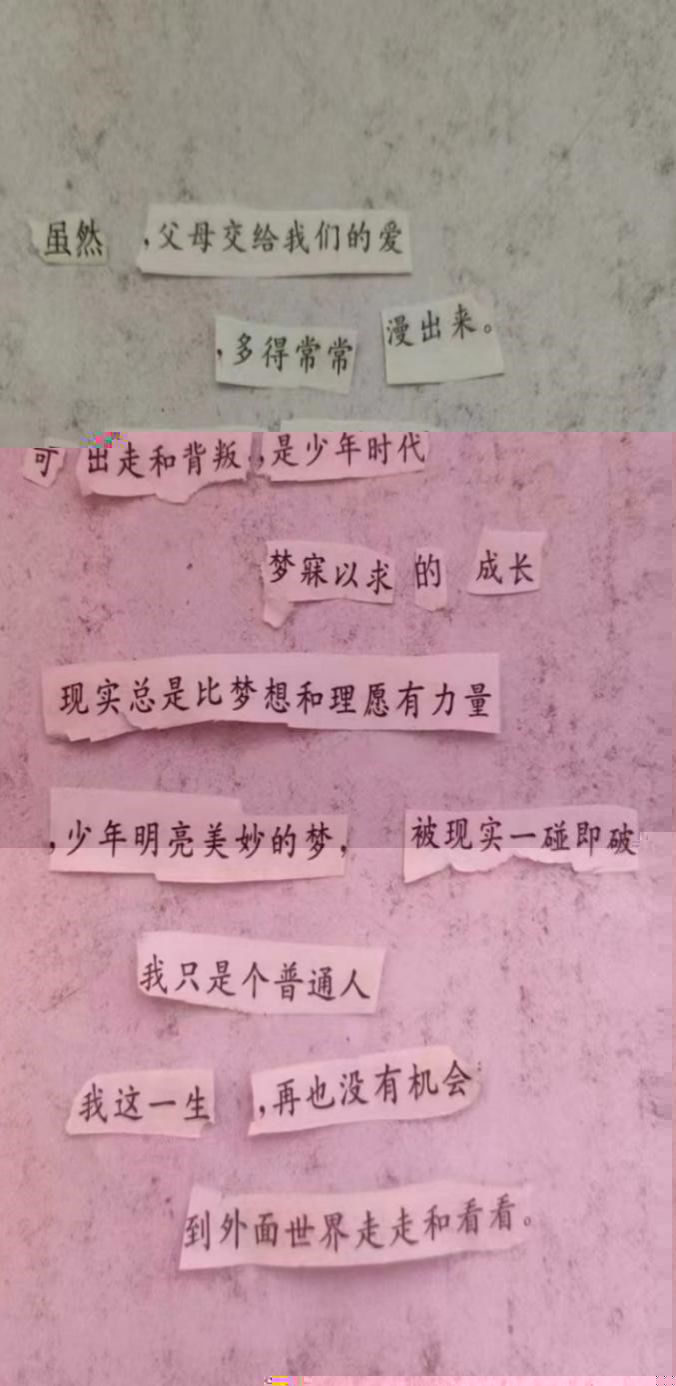 虽然 ,父母交给我们的爱
,多得常常 漫出来。
出走和背叛,是少年时代
梦寐以求 的 成长
现实总是比梦想和理愿有力量
,少年明亮美妙的梦, 被现实一碰即破
我只是个普通人
我这一生 ,再也没有机会
到外面世界走走和看看。